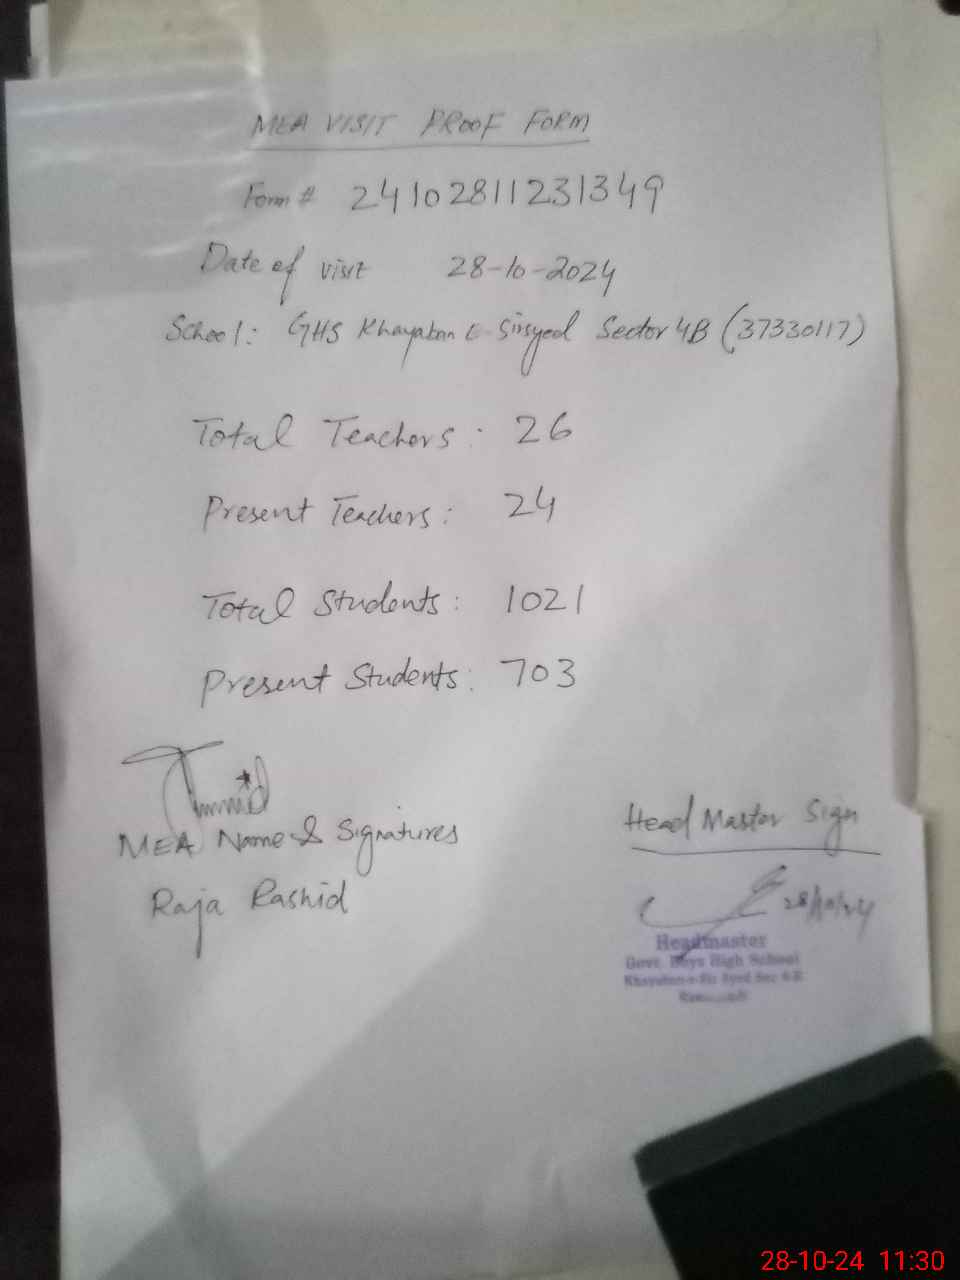 MEA VISIT PROOF FORM
Form # 24102811231349
Date of visit 28-10-2024
School: GHS Khayaban E-Sirsyed Sector 4B (37330117)
Total Teachers: 26
Present Teachers: 24
Total Students: 1021
Present Students: 703
MEA Name & Signatures
Raja Rashid
Head Master Sign
28/10/24
Headmaster
Govt. Boys High School
Khayaban-e-Sir Syed Sec 4-B
28-10-24 11:30